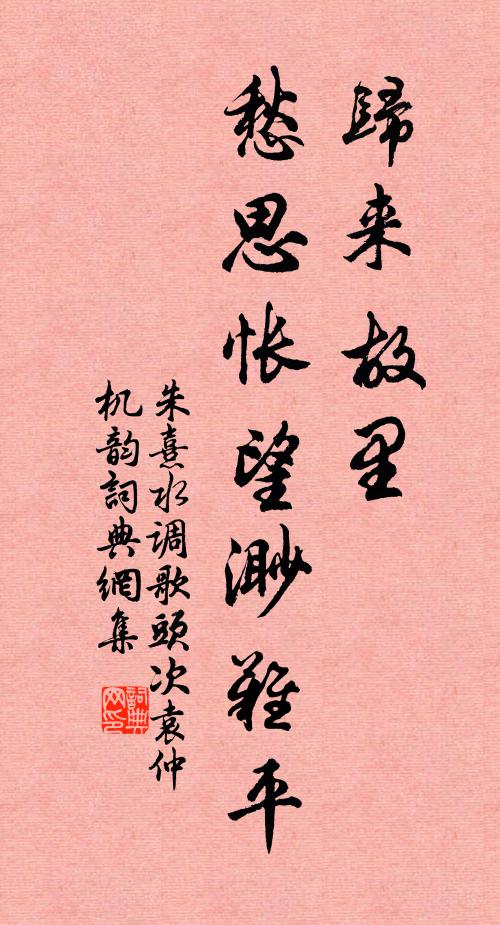 歸来故里
愁思悵望渺難平
朱熹水调歌頭次袁仲
机韵詞典網集
詞典网印